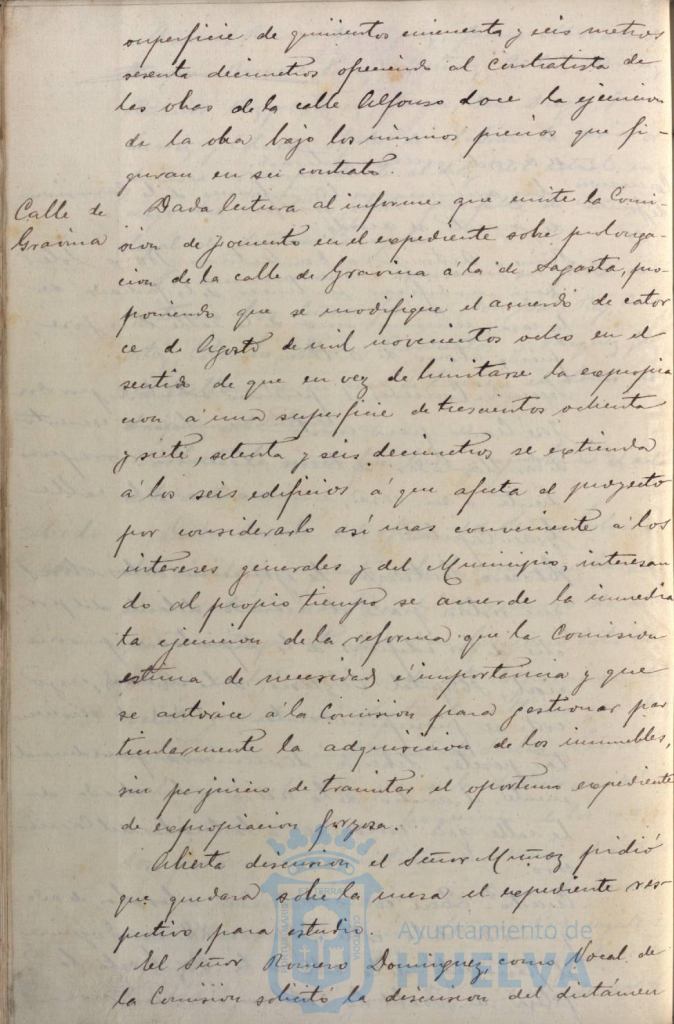 superficie de quinientos cincuenta y seis metros
sesenta decimetros ofreciendo al contratista de
las obras de la calle Alfonso doce la ejecucion
de la obra bajo los mismos precios que fi-
guran en su contrato.
Calle de
Gravina
Dada lectura al informe que emite la Comi-
sion de Fomento en el expediente sobre prolonga-
cion de la calle de Gravina á la de Sagasta, pro-
poniendo que se modifique el acuerdo de cator
ce de Agosto de mil novecientos ocho en el
sentido de que en vez de limitarse la expropia
cion á una superficie de trescientos ochenta
y siete, setenta y seis decimetros se extienda
á los seis edificios á que afecta el proyecto
por considerarlo así mas conveniente á los
intereses generales y del Municipio, interesan
do al propio tiempo se acuerde la inmedia
ta ejecucion de la reforma que la Comision
estima de necesidad é importancia y que
se autorice á la Comision para gestionar par
ticularmente la adquisicion de los inmuebles,
sin perjuicio de tramitar el oportuno expediente
de expropiacion forzosa.
Abierta discusion el Señor Muñoz pidió
que quedara sobre la mesa el expediente res-
pectivo para estudio.
El Señor Romero Dominguez, como Vocal de
la Comision solicitó la discusion del dictámen
Ayuntamiento de
HUELVA